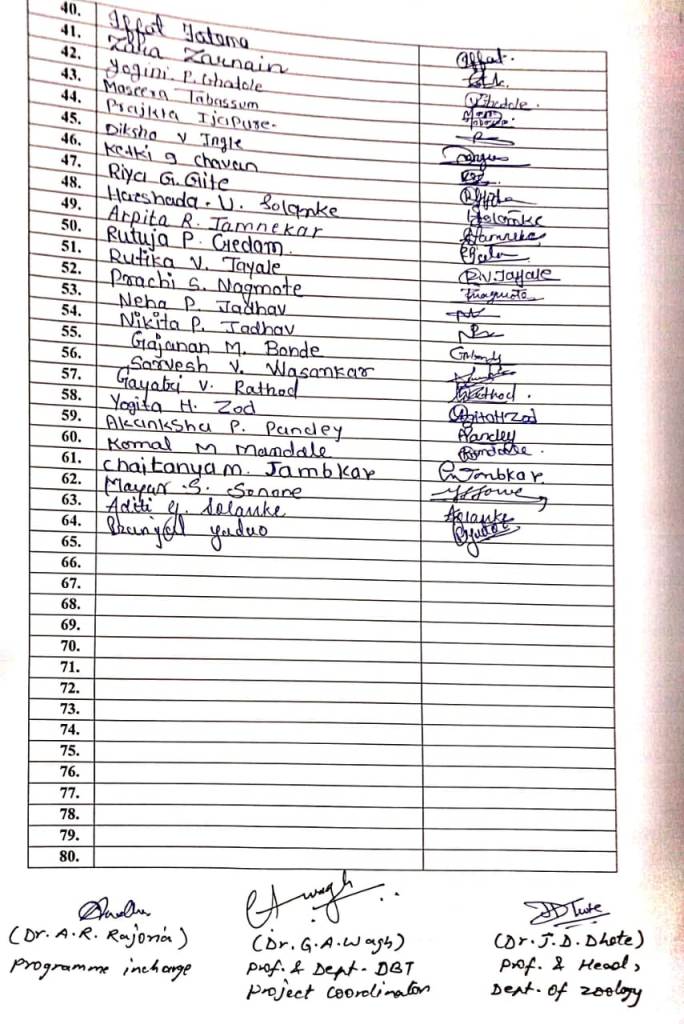 40. Iffat Fatema Iffat.
41. Zaka Zarnain
42. Yogini. P. Ghatole
43. Maseera Tabassum
44. Prajkta Ijapure.
45. Diksha V Ingle
46. Ketki g chavan
47. Riya G. Gite
48. Harshada. V. Solanke Solanke
49. Arpita R. Jamnekar
50. Rutuja P. Gedam.
51. Rutika V. Tayale R.V Tayale
52. Prachi S. Nagmote Nagmote
53. Neha P. Jadhav
54. Nikita P. Jadhav
55. Gajanan M. Bonde
56. Sarvesh V. Wasankar
57. Gayatri V. Rathod Rathod.
58. Yogita H. Zod Yogita H Zod
59. Akanksha P. Pandey Pandey
60. Komal M Mandale
61. Chaitanya m. Jambkar Jambkar
62. Mayur .S. Sonone
63. Aditi g. Solanke Solanke
64. Pranjal yadav
65.
66.
67.
68.
69.
70.
71.
72.
73.
74.
75.
76.
77.
78.
79.
80.
(Dr. A.R. Rajoria) (Dr. G.A. Wagh) (Dr. J.D. Dhote)
programme incharge Prof. & Dept. DBT Prof. & Head,
Project Coordinator Dept. of zoology